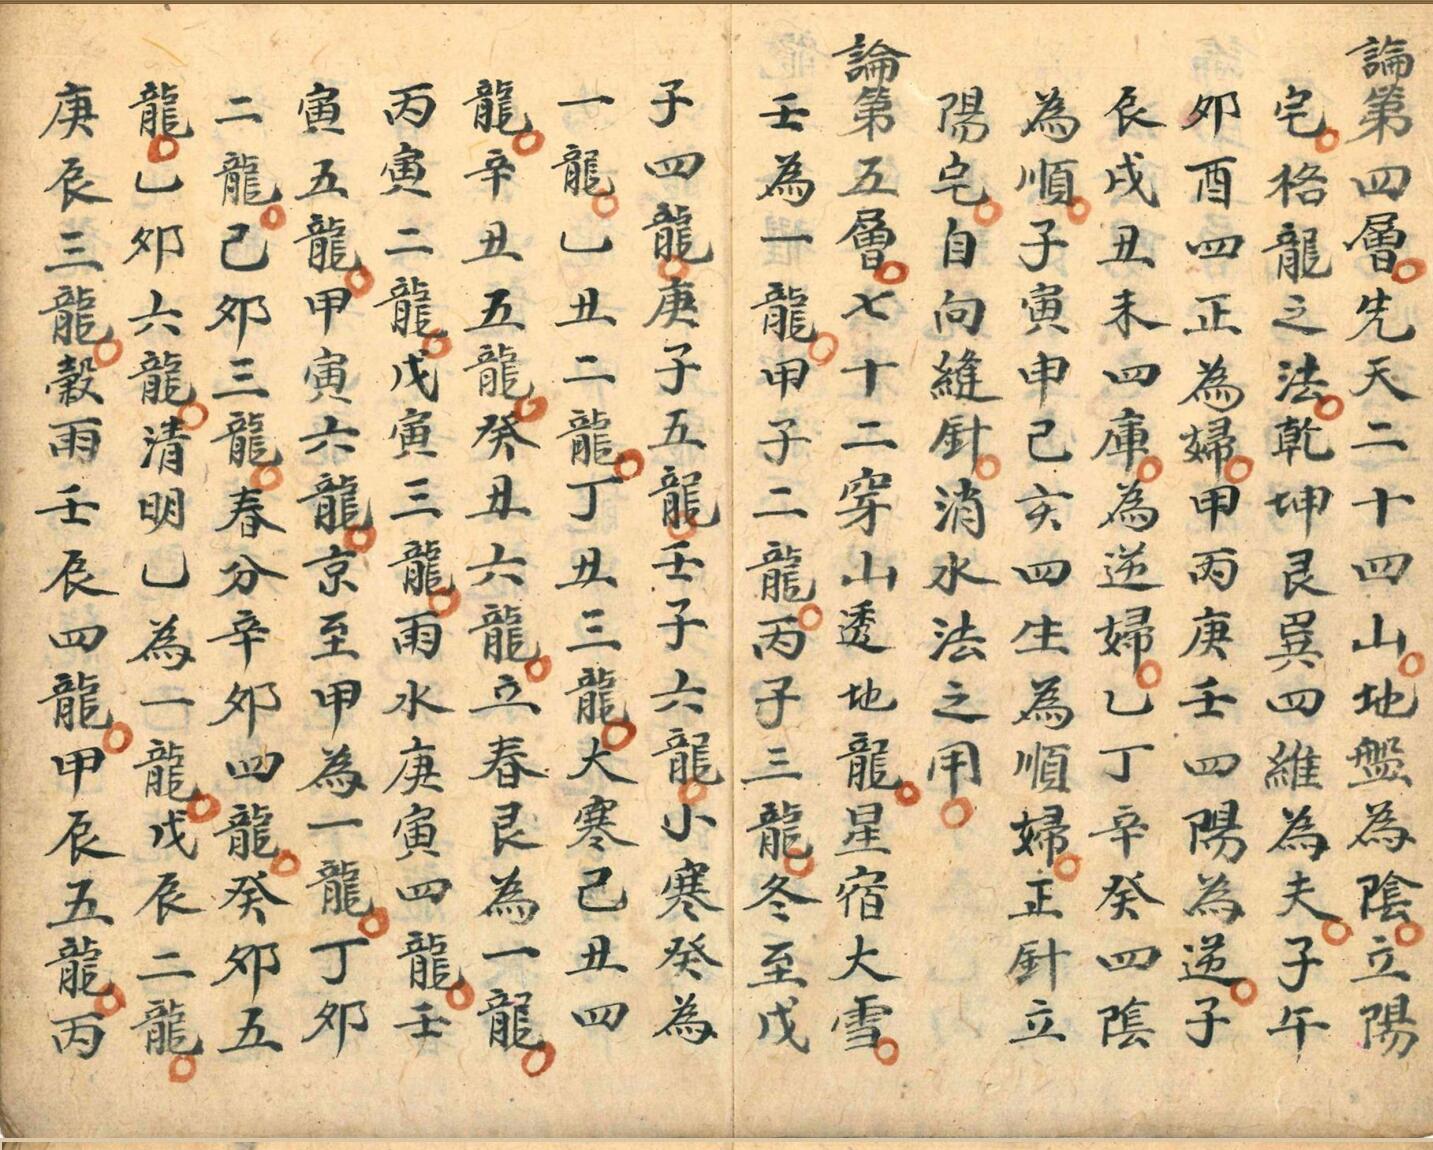 論第四層先天二十四山地盤為陰立陽
宅格龍之法乾坤艮巽四維為夫子午
卯酉四正為婦甲丙庚壬四陽為逆子
辰戌丑未四庫為逆婦乙丁辛癸四陰
為順子寅申巳亥四生為順婦正針立
陽宅自向縫針消水法之用
論第五層七十二穿山透地龍星宿大雪
壬為一龍甲子二龍丙子三龍冬至戊
子四龍庚子五龍壬子六龍小寒癸為
一龍乙丑二龍丁丑三龍大寒己丑四
龍辛丑五龍癸丑六龍立春艮為一龍
丙寅二龍戊寅三龍雨水庚寅四龍壬
寅五龍甲寅六龍京至甲為一龍丁卯
二龍己卯三龍春分辛卯四龍癸卯五
龍乙卯六龍清明乙為一龍戊辰二龍
庚辰三龍穀雨壬辰四龍甲辰五龍丙